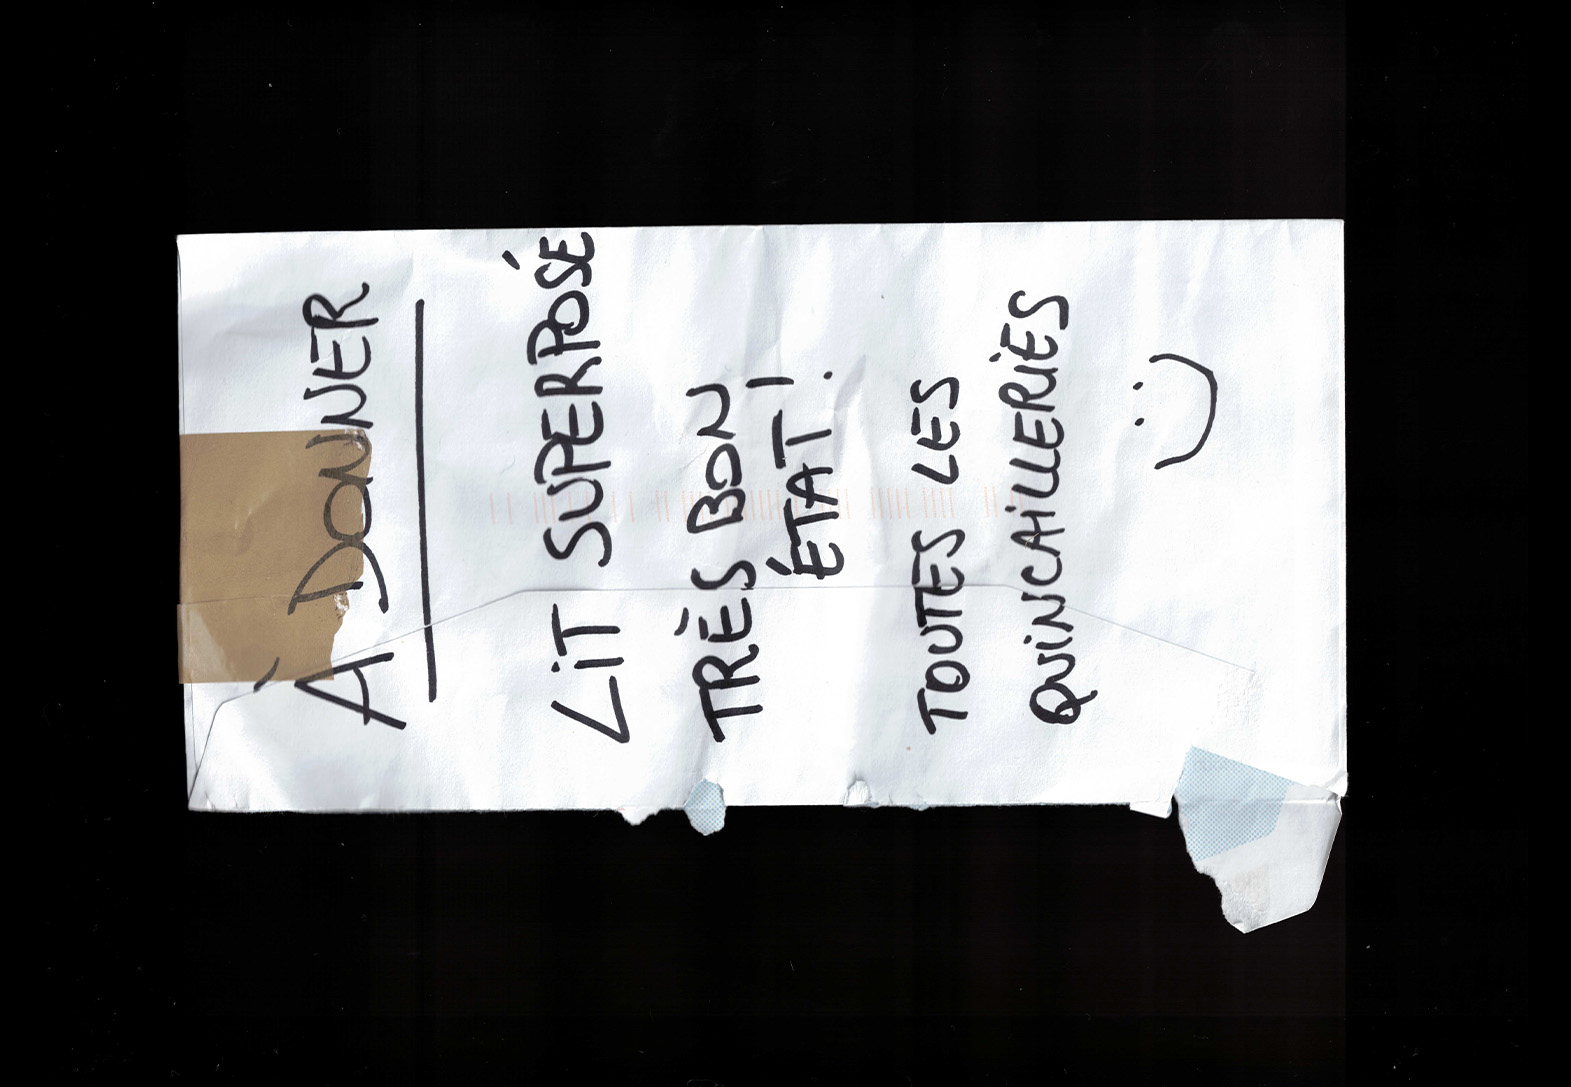 À DONNER
LiT SUPERPOSÉ
TRÈS BON
ÉTAT!
TOUTES LES
QUiNCAiLLERiES
:)